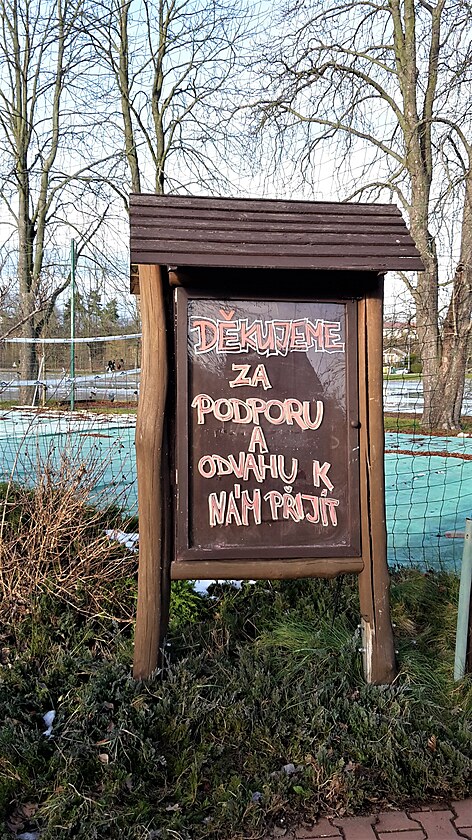 DĚKUJEME
ZA
PODPORU
A
ODVAHU K
NÁM PŘIJÍT